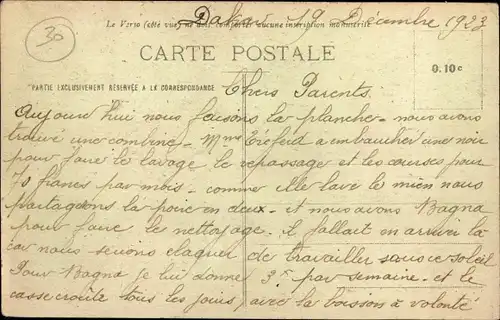 Le Verso (côté vue) ne doit comporter aucune inscription manuscrite
Dakar 19 Décembre 1923
30
CARTE POSTALE
0.10c
PARTIE EXCLUSIVEMENT RÉSERVÉE A LA CORRESPONDANCE
Chers Parents.
Aujourd'hui nous faisons la planche - nous avons
trouvé une combine - Mme a embaucher une noir
pour faire le lavage le repassage et les courses pour
70 francs par mois - comme elle lave le mien nous
partageons la poire en deux - et nous avons Bagna
pour faire le nettoyage. il fallait en arriver la
car nous serions claquer de travailler sous ce soleil
Pour Bagna je lui donne 3f par semaine - et le
casse croûte tous les jours, avec la boisson à volonté